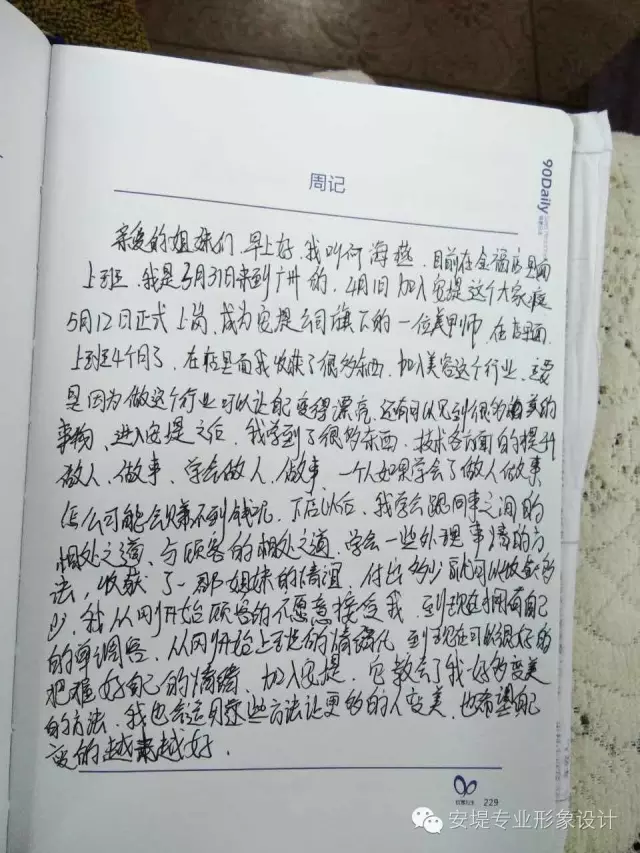 周记
90Daily
亲爱的姐妹们,早上好,我叫何海燕,目前在金福店里面
上班,我是3月31日来到广州的,4月1日加入安提这个大家庭
5月12日正式上岗,成为安提公司旗下的一位美甲师,在店里面
上班4个月了,在店里面我收获了很多东西,加入美容这个行业,主要
是因为做这个行业可以让自己变得漂亮,还有可以见到很多的美的
事物,进入安提之后,我学到了很多东西,技术各方面的提升
做人、做事、学会做人、做事,一个人如果学会了做人做事
怎么可能会赚不到钱呢,下店以后,我学会跟同事之间的
相处之道,与顾客的相处之道,学会一些处理事情的方
法,收获了一群姐妹的情谊,付出多少就可以收获多
少,我从刚开始顾客的不愿意接受我,到现在拥有自己
的回头客,从刚开始上班的情绪化,到现在可以很好的
把握好自己的情绪,加入安提,它教会了我好多变美
的方法,我也会运用这些方法让更多的人变美,也希望自己
变的越来越好.
229
安堤专业形象设计